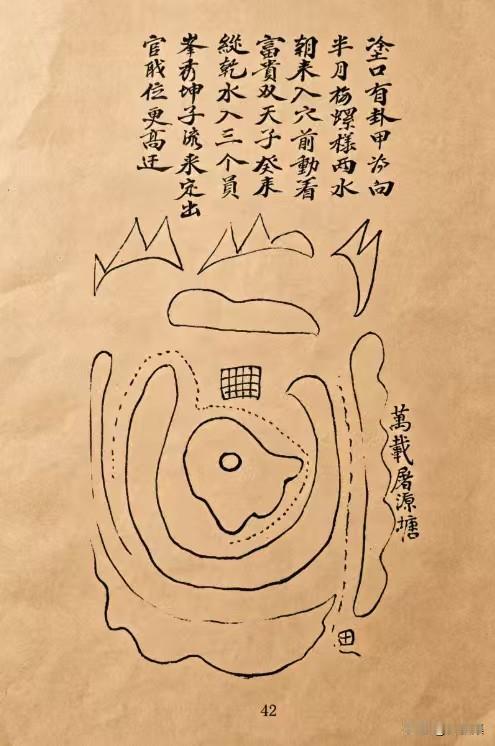 塗口有卦甲为向
半月梅螺樣两水
朝来入穴前動看
富貴双天子癸来
縱乾水入三个員
峯秀坤子流来定出
官戝位更高迁
萬載屠源塘
42